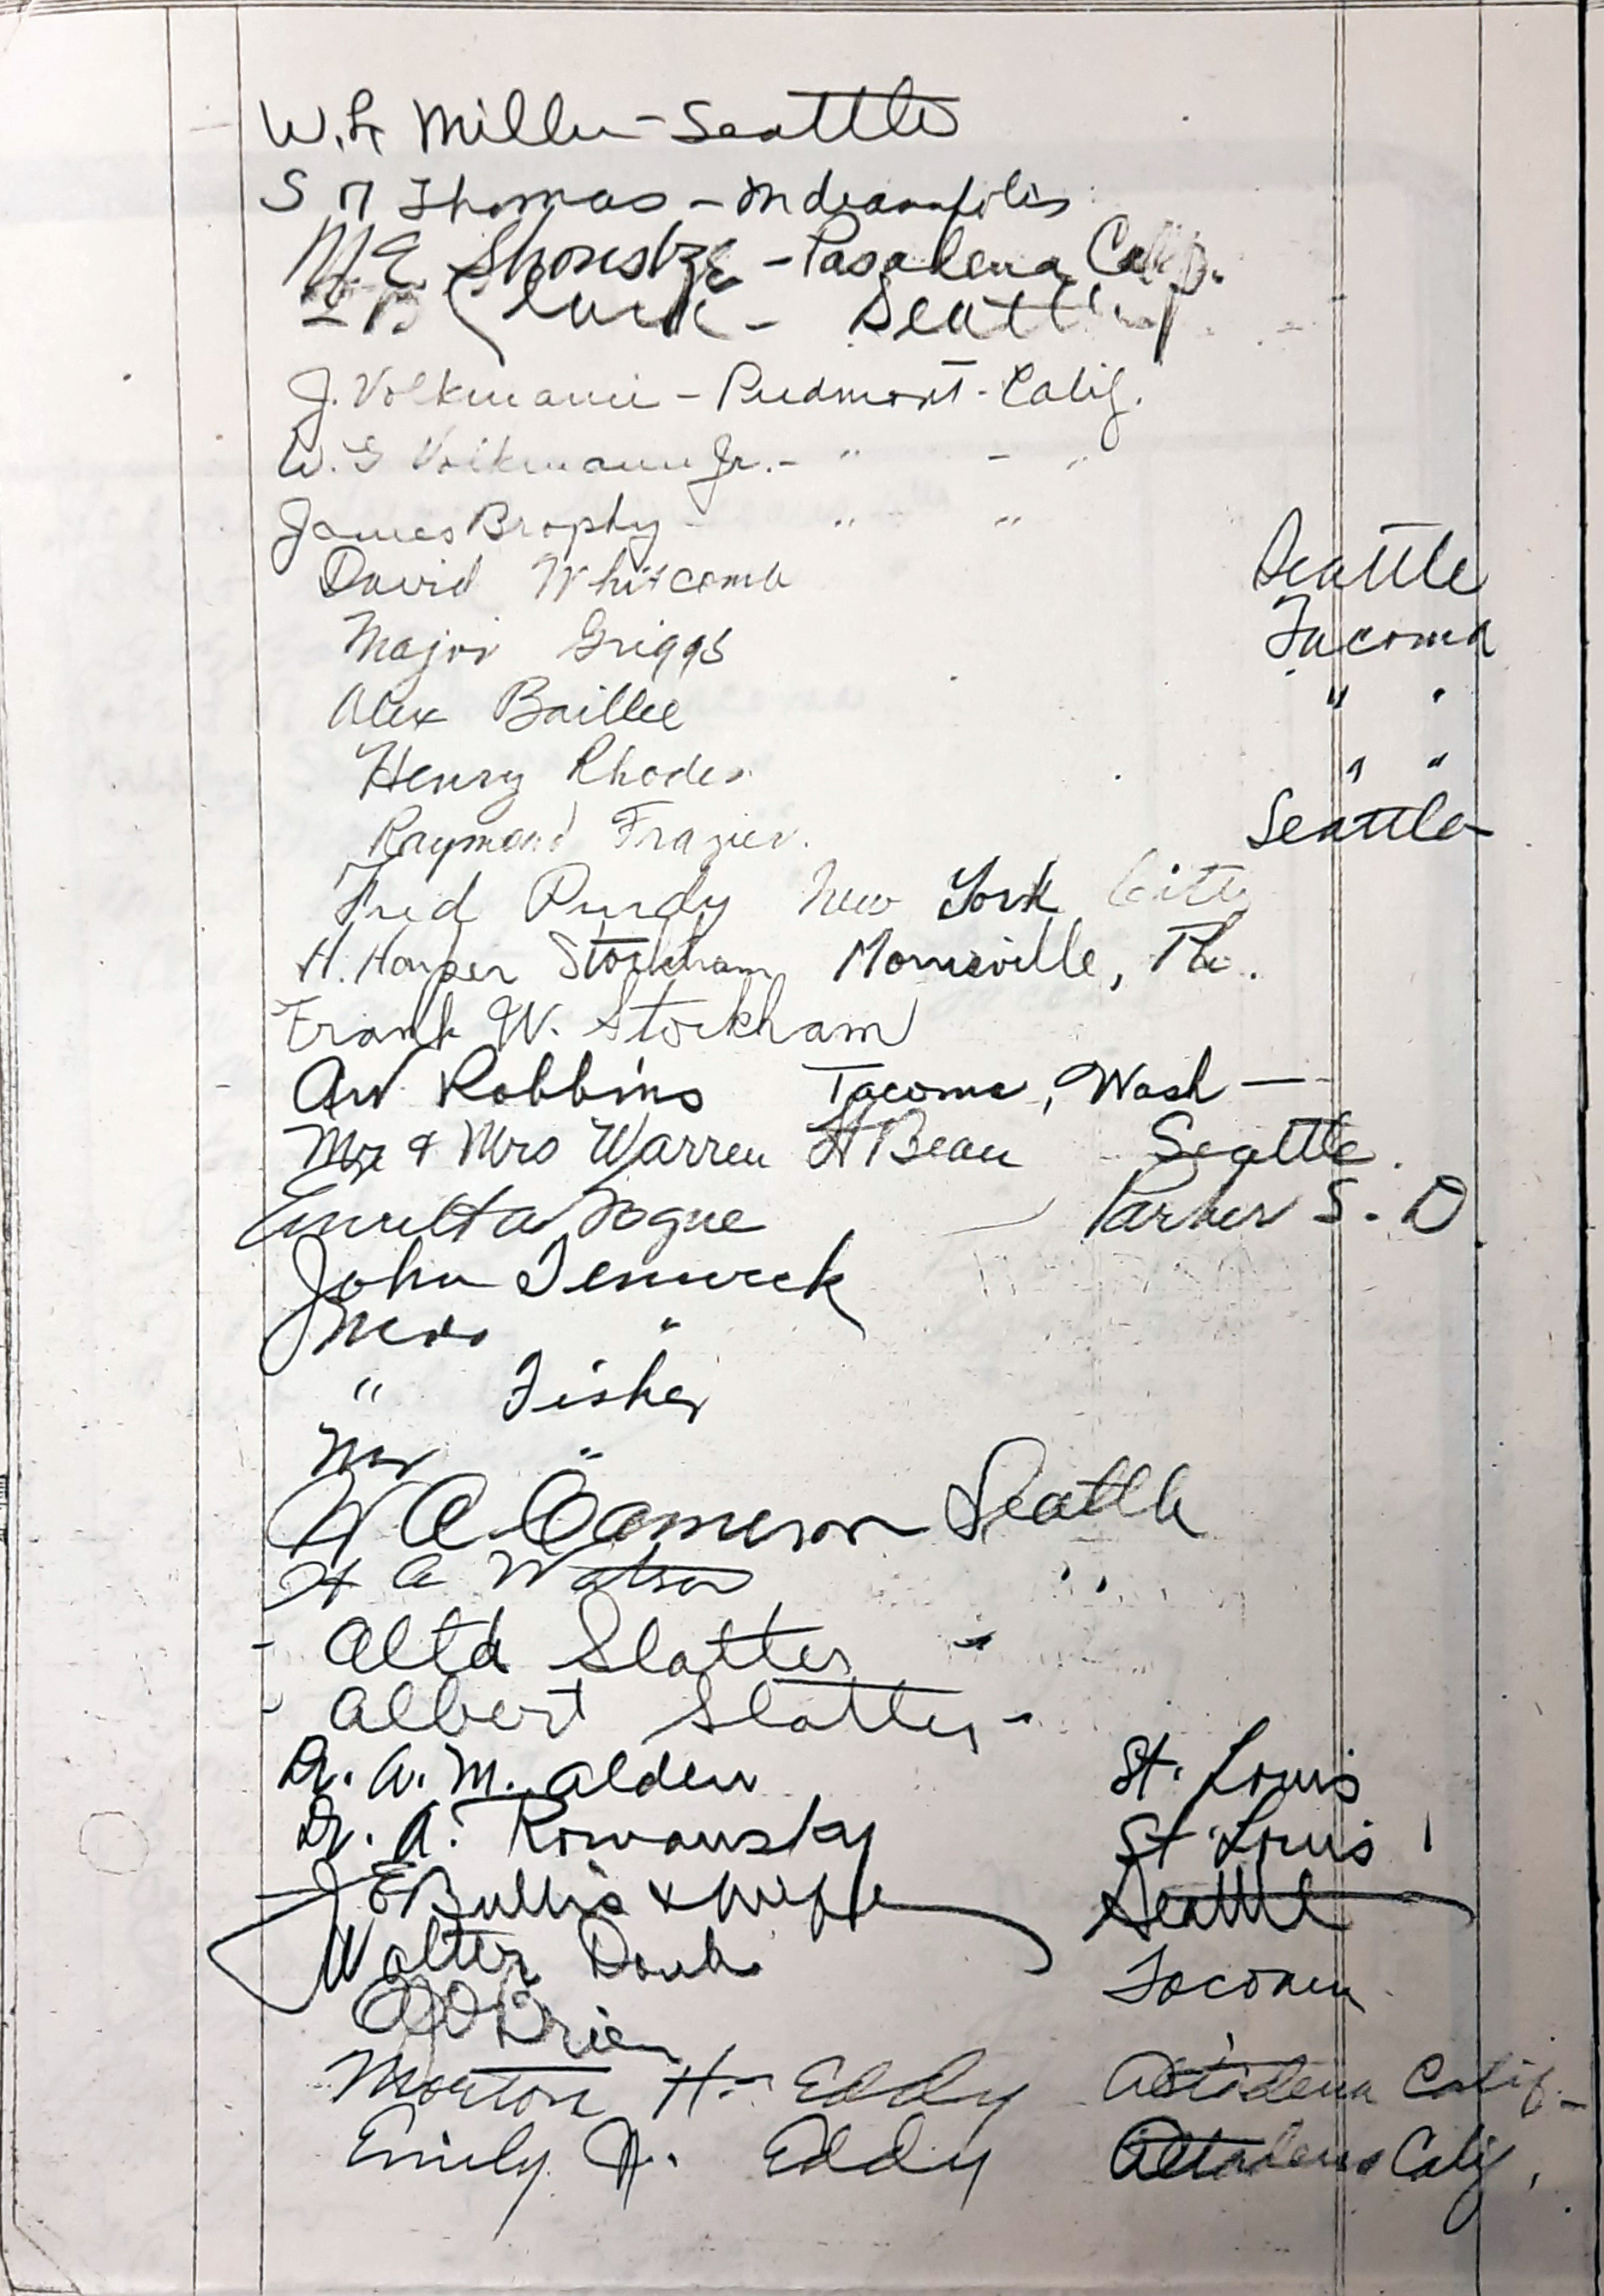 W. Miller - Seattle
S Thomas - Indianapolis
M. E. - Pasadena Calif.
B Clark - Seattle
J. Volkmann - Piedmont - Calif.
W. G Volkmann Jr. - " - "
James Brophy - " "
David Whitcomb Seattle
Major Griggs Tacoma
Alex Baillie " "
Henry Rhodes " "
Raymond Frazier. Seattle
Fred Purdy New York City
H. Harper Stockham Morrisville, Pa.
Frank W. Stockham
AW Robbins Tacoma, Wash —
Mr & Mrs Warren H Bean Seattle.
Logue Parker S. D
John Fenwick
Mrs "
" Fisher
Mr "
W A Cameron Seattle
H A Watson "
- Alta Slatter "
- Albert Slatter -
Dr. A. M. Alden St. Louis
Dr. A. Romansky St. Louis
J E Bullis & wife Seattle
Walter Tacoma
O'Brien
Morton H. Eddy Altadena Calif.
Emily H. Eddy Altadena Calif.